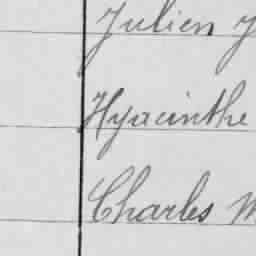 Julien J
Hyacinthe
Charles M